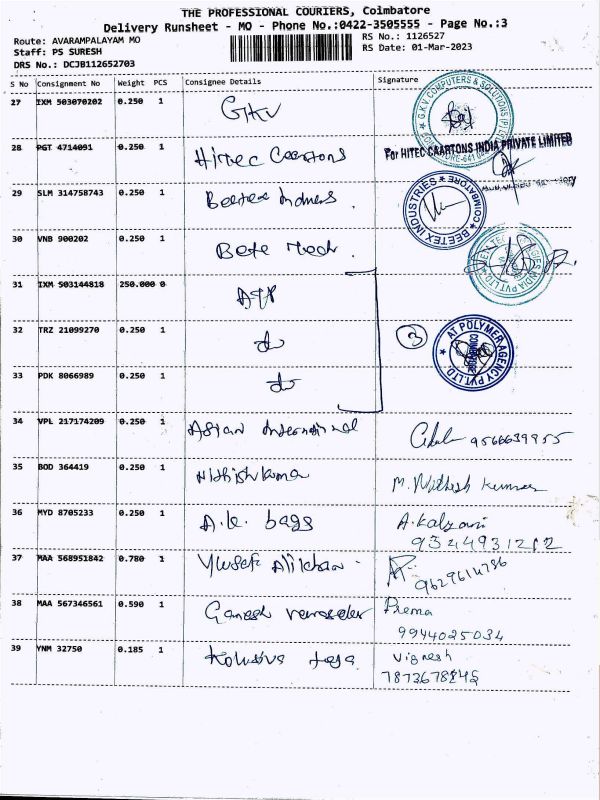 THE PROFESSIONAL COURIERS, Coimbatore
Delivery Runsheet - MO - Phone No.:0422-3505555 - Page No.:3
Route: AVARAMPALAYAM MO
RS No.: 1126527
Staff: PS SURESH
RS Date: 01-Mar-2023
DRS No.: DCJB112652703
S No Consignment No Weight PCS Consignee Details Signature
27 IXM 503070202 0.250 1 GKV
G.K.V COMPUTERS & SOLUTIONS
28 PGT 4714091 0.250 1 Hitec Caartons
For HITEC CAARTONS INDIA PRIVATE LIMITED
29 SLM 314758743 0.250 1
BEETEX INDUSTRIES COIMBATORE
30 VNB 900202 0.250 1
INDIA PVT LTD
31 IXM 503144818 250.000 0
32 TRZ 21099270 0.250 1 do 3
AT POLYMER AGENCY PVT LTD COIMBATORE
33 PDK 8066989 0.250 1 do
34 VPL 217174209 0.250 1 Asian International 9566639955
35 BOD 364419 0.250 1 Nithishkumar M. Nithesh kumar
36 MYD 8705233 0.250 1 A.K. bags A.Kalyani
9344931212
37 MAA 568951842 0.780 1 Yusef Alikhan
38 MAA 567346561 0.590 1 Ganesh Prema
9944025034
39 YNM 32750 0.185 1 Vignesh